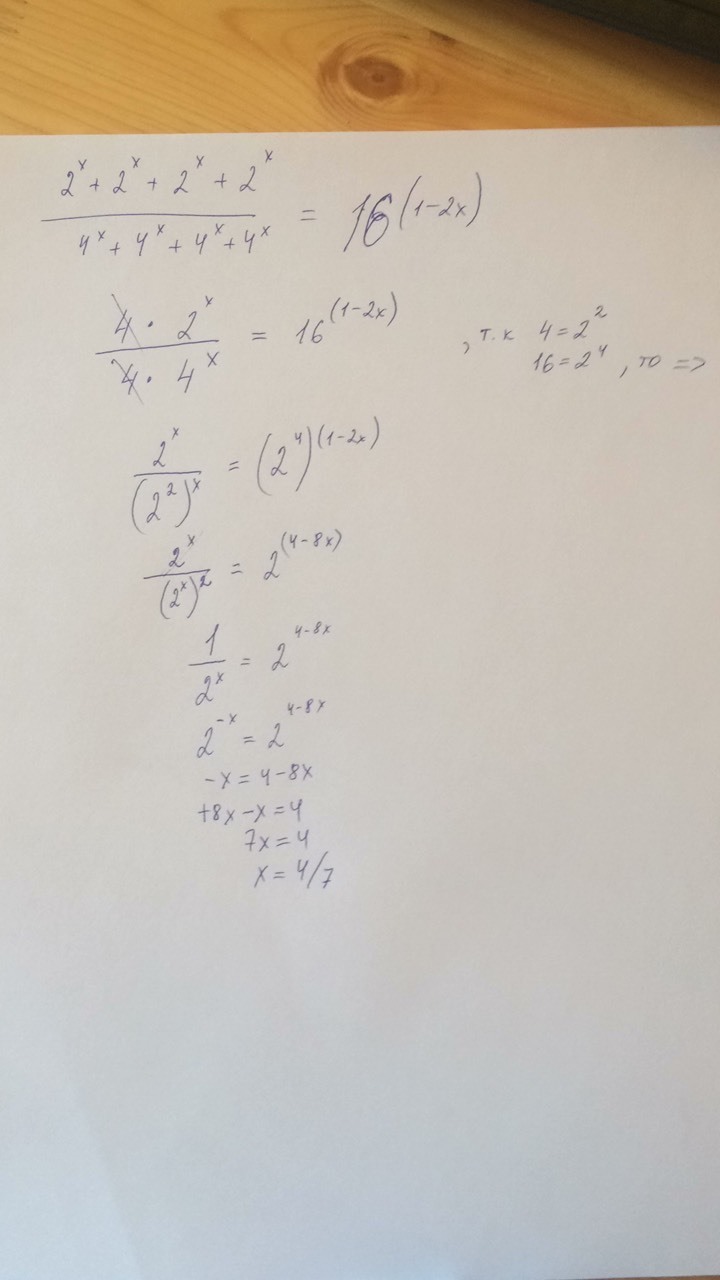 2^x + 2^x + 2^x + 2^x / 4^x + 4^x + 4^x + 4^x = 16^(1-2x)
4 · 2^x / 4 · 4^x = 16^(1-2x) , т.к 4 = 2^2
16 = 2^4 , то =>
2^x / (2^2)^x = (2^4)^(1-2x)
2^x / (2^x)^2 = 2^(4-8x)
1 / 2^x = 2^4-8x
2^-x = 2^4-8x
-x = 4-8x
+8x-x=4
7x=4
x=4/7